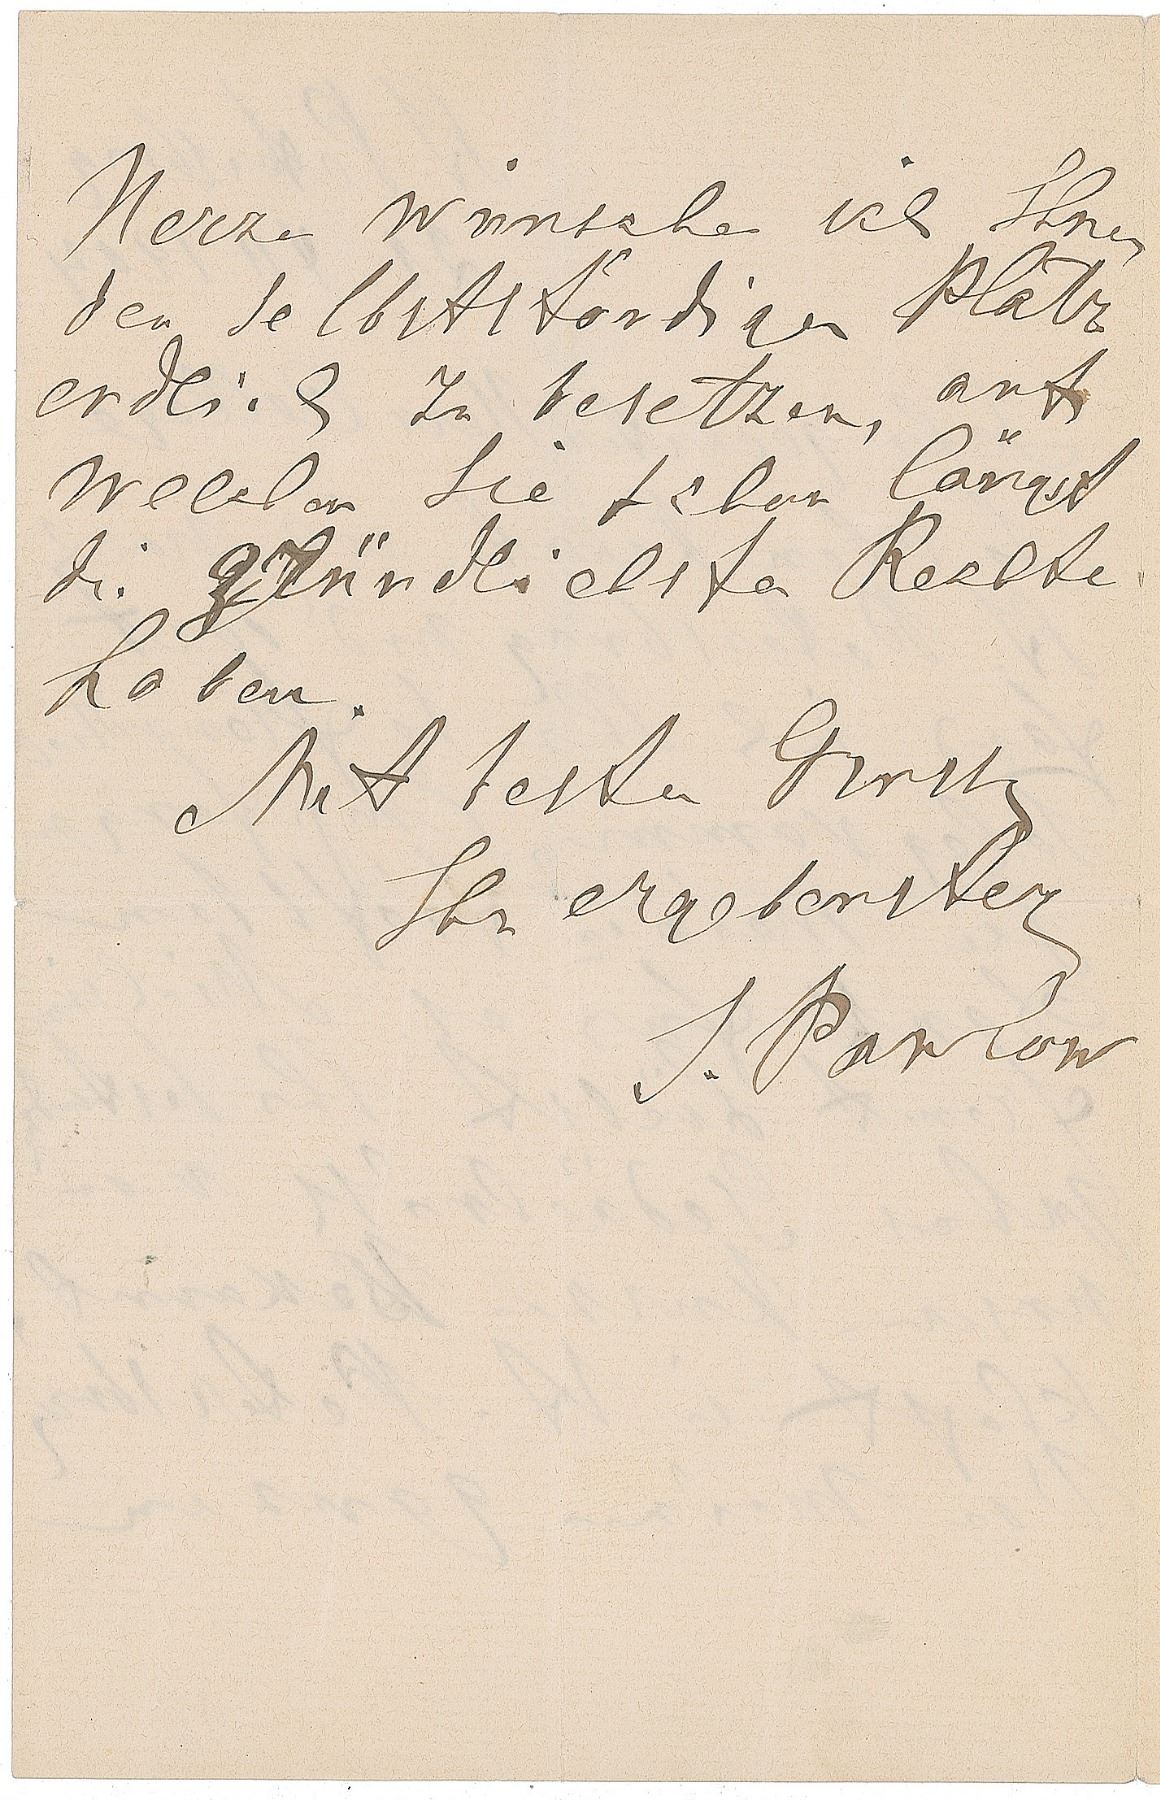 Herzen wünsche ich Ihnen
den selbstständigen Platz
endlich zu besetzen, auf
welchen Sie schon längst
die gründlichsten Rechte
haben.
Mit besten Gruß
Ihr ergebenster
J. Pawlow